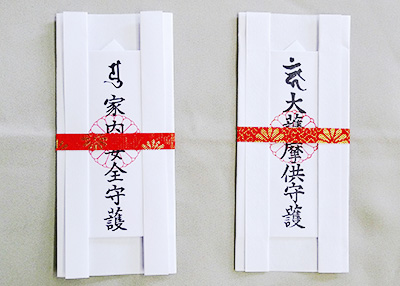 家内安全守護
大護摩供守護